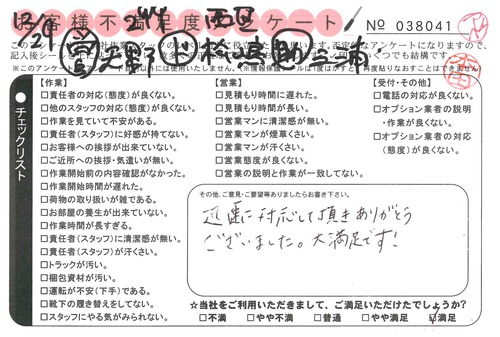 お客様不満足度アンケート
No 038041
12/29
記入後シール
【作業】
□責任者の対応(態度)が良くない。
□他のスタッフの対応(態度)が良くない。
□作業を見ていて不安がある。
□責任者(スタッフ)に好感が持てない。
□お客様への挨拶が出来ていない。
□ご近所への挨拶・気遣いが無い。
□作業開始前の内容確認がなかった。
□作業開始時間が遅れた。
□荷物の取り扱いが雑である。
□お部屋の養生が出来ていない。
□作業時間が長すぎる。
□責任者(スタッフ)に清潔感が無い。
□責任者(スタッフ)が汗くさい。
□トラックが汚い。
□梱包資材が汚い。
□運転が不安(下手)である。
□靴下の履き替えをしてない。
□スタッフにやる気がみられない。
【営業】
□見積もり時間に遅れた。
□見積もり時間が長い。
□営業マンに清潔感が無い。
□営業マンが煙草くさい。
□営業マンが汗くさい。
□営業態度が良くない。
□営業の説明と作業が一致してない。
【受付・その他】
□電話の対応が良くない。
□オプション業者の説明
・作業が良くない。
□オプション業者の対応
(態度)が良くない。
●チェックリスト
その他、ご意見・ご要望等ありましたらお書き下さい。
迅速に対応して頂きありがとう
ございました。大満足です!
☆当社をご利用いただきまして、ご満足いただけたでしょうか?
□不満 □やや不満 □普通 □やや満足 □満足